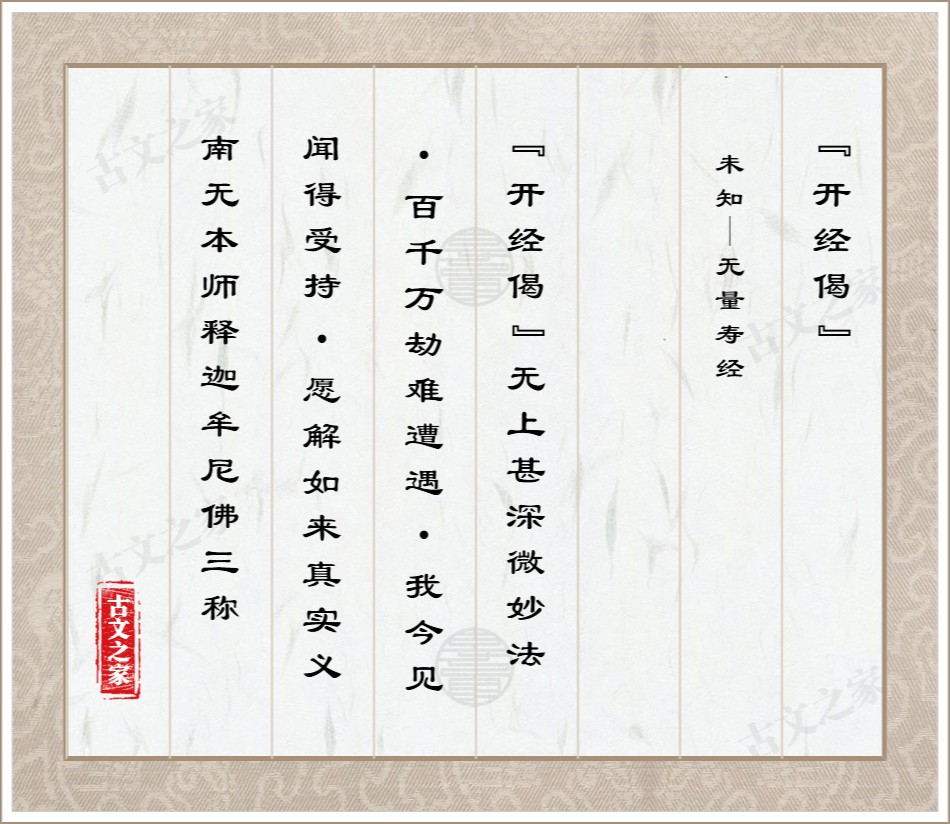 『开经偈』
未知—无量寿经
『开经偈』无上甚深微妙法
·百千万劫难遭遇·我今见
闻得受持·愿解如来真实义
南无本师释迦牟尼佛三称
古文之家
古文之家
古文之家
古文之家
古文之家